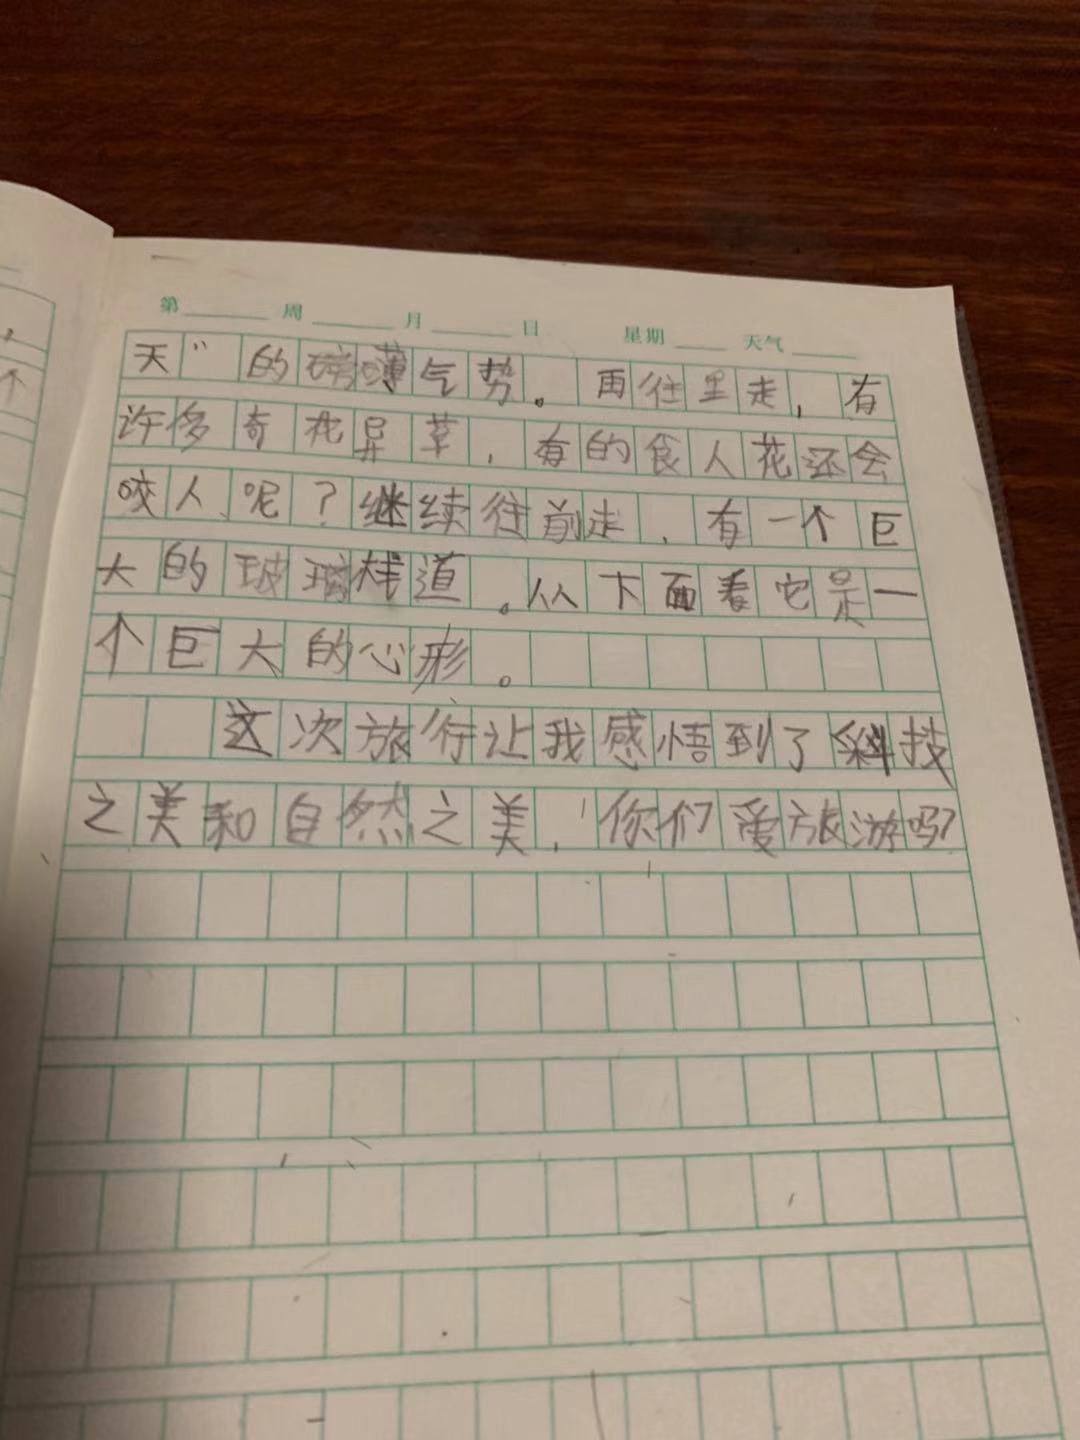 第 周 月 日 星期 天气
天”的磅礴气势。再往里走，有
许多奇花异草，有的食人花还会
咬人呢？继续往前走，有一个巨
大的玻璃栈道。从下面看它是一
个巨大的心形。
这次旅行让我感悟到了科技
之美和自然之美，你们爱旅游吗？